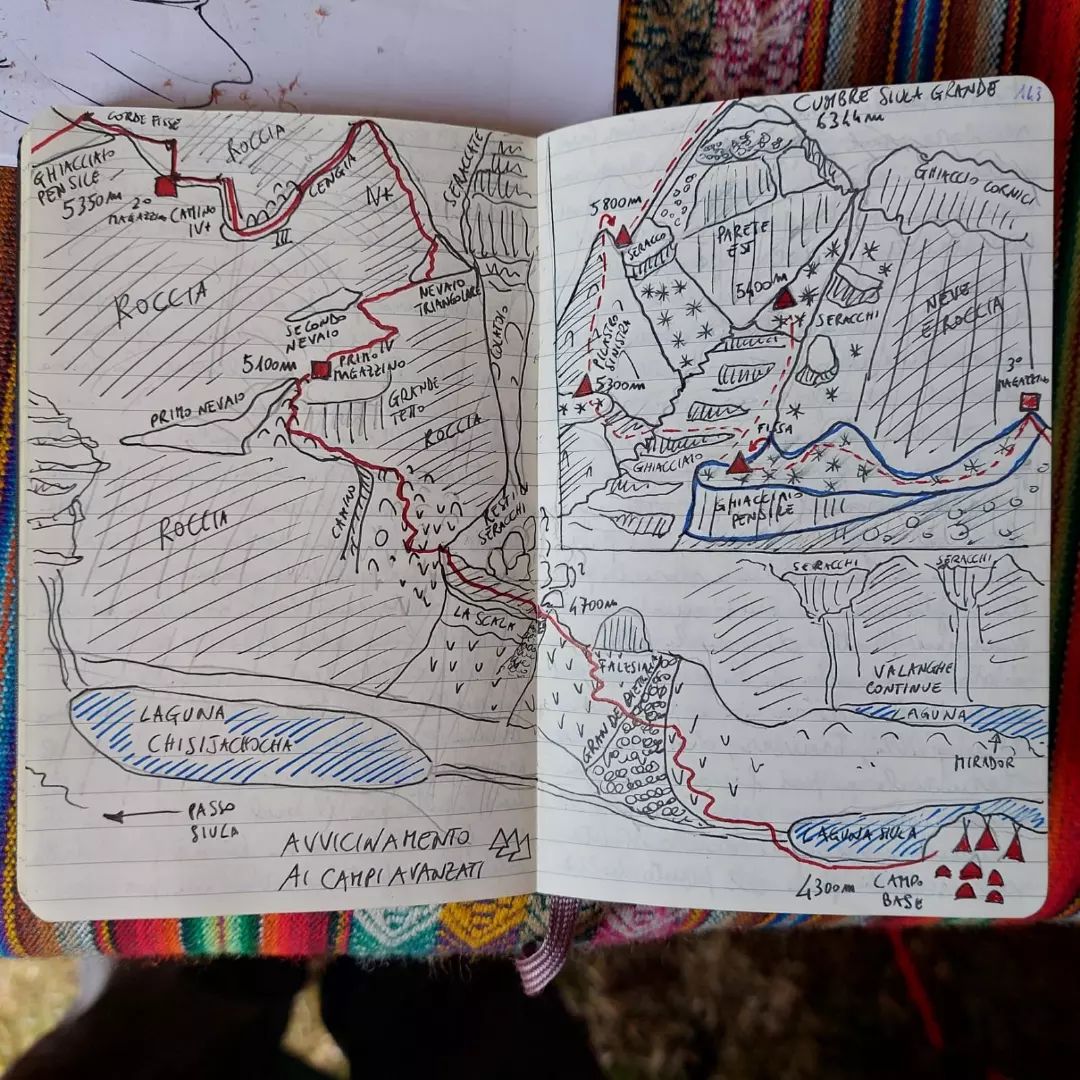 CORDE FISSE
ROCCIA
GHIACCIAIO
PENSILE
5350m
2º
MAGAZZINO
CAMINO
IV+
III
CENGIA
IV+
SERACCATE
ROCCIA
NEVAIO
TRIANGOLARE
SECONDO
NEVAIO
COLATOIO
IV
5100m
PRIMO
MAGAZZINO
PRIMO NEVAIO
GRANDE
TETTO
ROCCIA
ROCCIA
CAMINO
RESTI
SERACCHI
LA SCALA
LAGUNA
CHISIJACHOCHA
PASSO
SIULA
AVVICINAMENTO
AI CAMPI AVANZATI
CUMBRE SIULA GRANDE
6344m
143
5800m
SERACCO
PARETE
EST
GHIACCIO CORNICI
5400m
SERACCHI
NEVE
E ROCCIA
PILASTRO
SINISTRA
5300m
3º
MAGAZZINO
FISSA
GHIACCIAIO
GHIACCIAIO
PENSILE
4700m
FALESIA
GRANDE PIETRAIA
SERACCHI
SERACCHI
VALANGHE
CONTINUE
LAGUNA
MIRADOR
LAGUNA SIULA
4300m
CAMPO
BASE